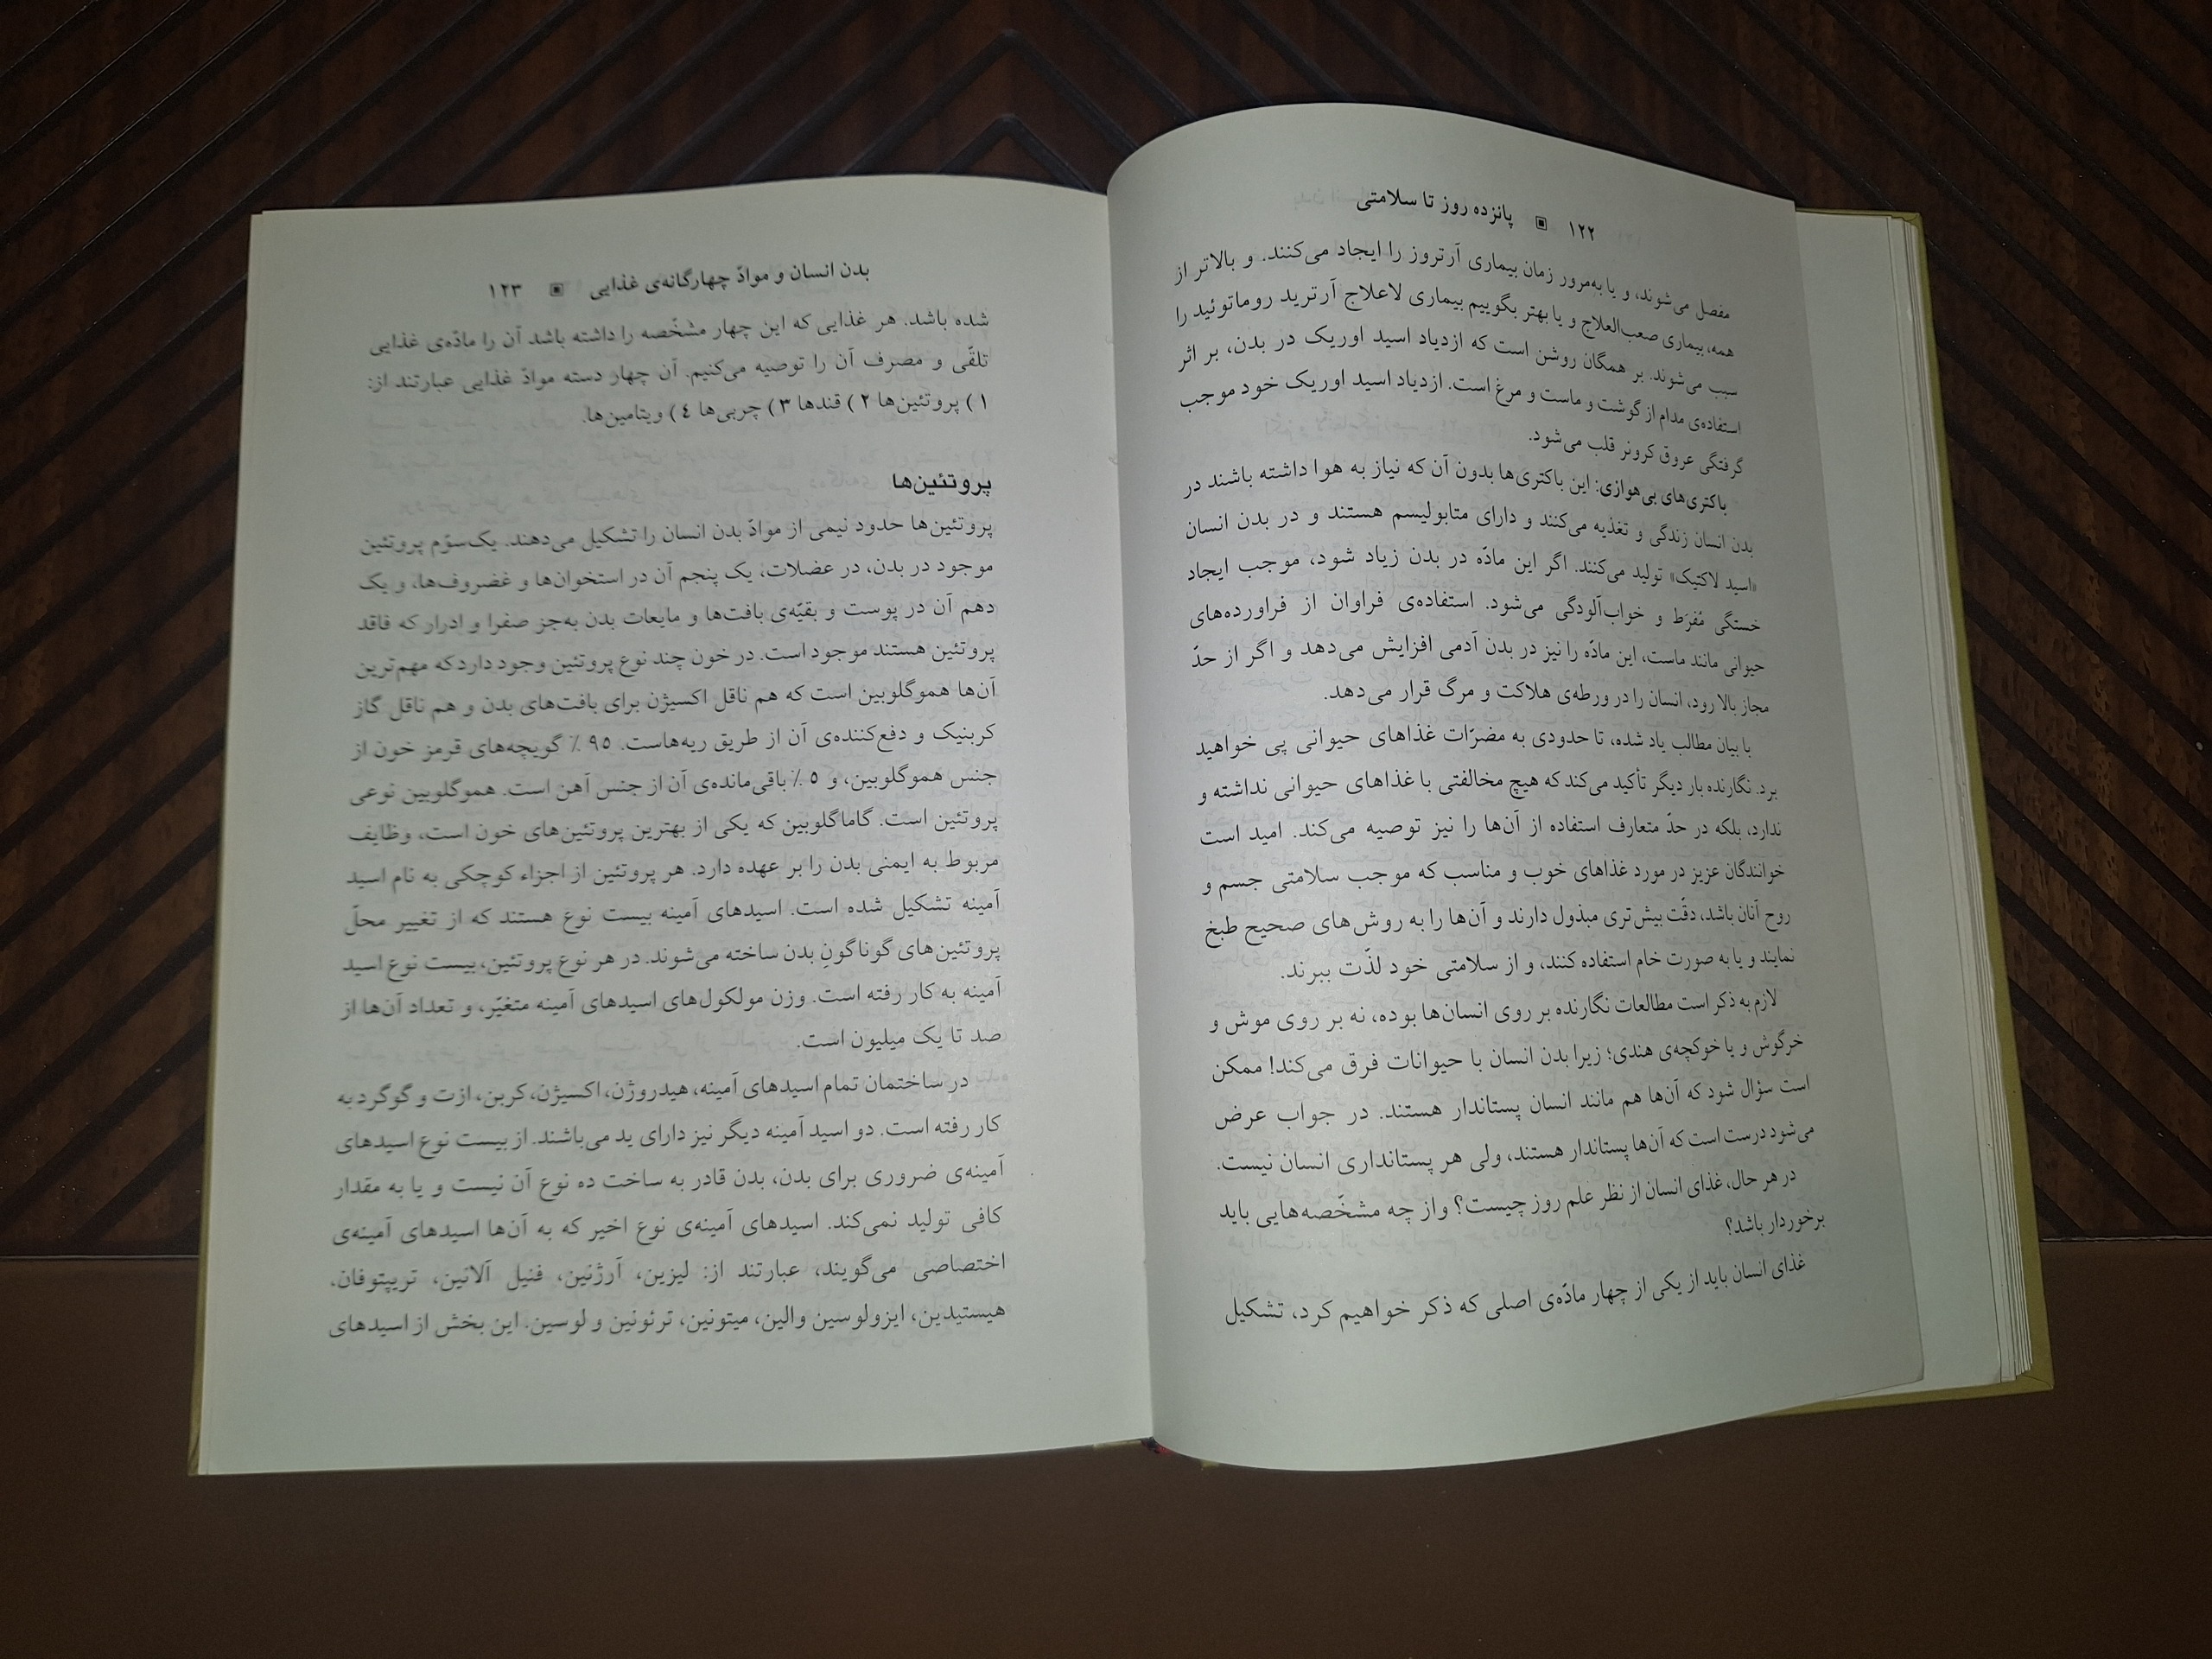 ۱۲۲ ▣ پانزده روز تا سلامتی
مفصل می‌شوند، و یا به‌مرور زمان بیماری آرتروز را ایجاد می‌کنند. و بالاتر از
همه، بیماری صعب‌العلاج و یا بهتر بگوییم بیماری لاعلاج آرترید روماتوئید را
سبب می‌شوند. بر همگان روشن است که ازدیاد اسید اوریک در بدن، بر اثر
استفاده‌ی مدام از گوشت و ماست و مرغ است. ازدیاد اسید اوریک خود موجب
گرفتگی عروق کرونر قلب می‌شود.
باکتری‌های بی‌هوازی: این باکتری‌ها بدون آن که نیاز به هوا داشته باشند در
بدن انسان زندگی و تغذیه می‌کنند و دارای متابولیسم هستند و در بدن انسان
«اسید لاکتیک» تولید می‌کنند. اگر این مادّه در بدن زیاد شود، موجب ایجاد
خستگی مُفرَط و خواب‌آلودگی می‌شود. استفاده‌ی فراوان از فراورده‌های
حیوانی مانند ماست، این مادّه را نیز در بدن آدمی افزایش می‌دهد و اگر از حدّ
مجاز بالا رود، انسان را در ورطه‌ی هلاکت و مرگ قرار می‌دهد.
با بیان مطالب یاد شده، تا حدودی به مضرّات غذاهای حیوانی پی خواهید
برد. نگارنده بار دیگر تأکید می‌کند که هیچ مخالفتی با غذاهای حیوانی نداشته و
ندارد، بلکه در حدّ متعارف استفاده از آن‌ها را نیز توصیه می‌کند. امید است
خوانندگان عزیز در مورد غذاهای خوب و مناسب که موجب سلامتی جسم و
روح آنان باشد، دقّت بیش‌تری مبذول دارند و آن‌ها را به روش‌های صحیح طبخ
نمایند و یا به صورت خام استفاده کنند، و از سلامتی خود لذّت ببرند.
لازم به ذکر است مطالعات نگارنده بر روی انسان‌ها بوده، نه بر روی موش و
خرگوش و یا خوکچه‌ی هندی؛ زیرا بدن انسان با حیوانات فرق می‌کند! ممکن
است سؤال شود که آن‌ها هم مانند انسان پستاندار هستند. در جواب عرض
می‌شود درست است که آن‌ها پستاندار هستند، ولی هر پستانداری انسان نیست.
در هر حال، غذای انسان از نظر علم روز چیست؟ و از چه مشخّصه‌هایی باید
برخوردار باشد؟
غذای انسان باید از یکی از چهار مادّه‌ی اصلی که ذکر خواهیم کرد، تشکیل
بدن انسان و موادّ چهارگانه‌ی غذایی ▣ ۱۲۳
شده باشد. هر غذایی که این چهار مشخّصه را داشته باشد آن را مادّه‌ی غذایی
تلقّی و مصرف آن را توصیه می‌کنیم. آن چهار دسته موادّ غذایی عبارتند از:
۱) پروتئین‌ها ۲) قندها ۳) چربی‌ها ٤) ویتامین‌ها.
پروتئین‌ها
پروتئین‌ها حدود نیمی از موادّ بدن انسان را تشکیل می‌دهند. یک‌سوّم پروتئین
موجود در بدن، در عضلات، یک پنجم آن در استخوان‌ها و غضروف‌ها، و یک
دهم آن در پوست و بقیّه‌ی بافت‌ها و مایعات بدن به‌جز صفرا و ادرار که فاقد
پروتئین هستند موجود است. در خون چند نوع پروتئین وجود دارد که مهم‌ترین
آن‌ها هموگلوبین است که هم ناقل اکسیژن برای بافت‌های بدن و هم ناقل گاز
کربنیک و دفع‌کننده‌ی آن از طریق ریه‌هاست. ۹۵ ٪ گویچه‌های قرمز خون از
جنس هموگلوبین، و ۵ ٪ باقی‌مانده‌ی آن از جنس آهن است. هموگلوبین نوعی
پروتئین است. گاماگلوبین که یکی از بهترین پروتئین‌های خون است، وظایف
مربوط به ایمنی بدن را بر عهده دارد. هر پروتئین از اجزاء کوچکی به نام اسید
آمینه تشکیل شده است. اسیدهای آمینه بیست نوع هستند که از تغییر محلّ
پروتئین‌های گوناگونِ بدن ساخته می‌شوند. در هر نوع پروتئین، بیست نوع اسید
آمینه به کار رفته است. وزن مولکول‌های اسیدهای آمینه متغیّر، و تعداد آن‌ها از
صد تا یک میلیون است.
در ساختمان تمام اسیدهای آمینه، هیدروژن، اکسیژن، کربن، ازت و گوگرد به
کار رفته است. دو اسید آمینه دیگر نیز دارای ید می‌باشند. از بیست نوع اسیدهای
آمینه‌ی ضروری برای بدن، بدن قادر به ساخت ده نوع آن نیست و یا به مقدار
کافی تولید نمی‌کند. اسیدهای آمینه‌ی نوع اخیر که به آن‌ها اسیدهای آمینه‌ی
اختصاصی می‌گویند، عبارتند از: لیزین، آرژنین، فنیل آلانین، تریپتوفان،
هیستیدین، ایزولوسین والین، میتونین، ترئونین و لوسین. این بخش از اسیدهای